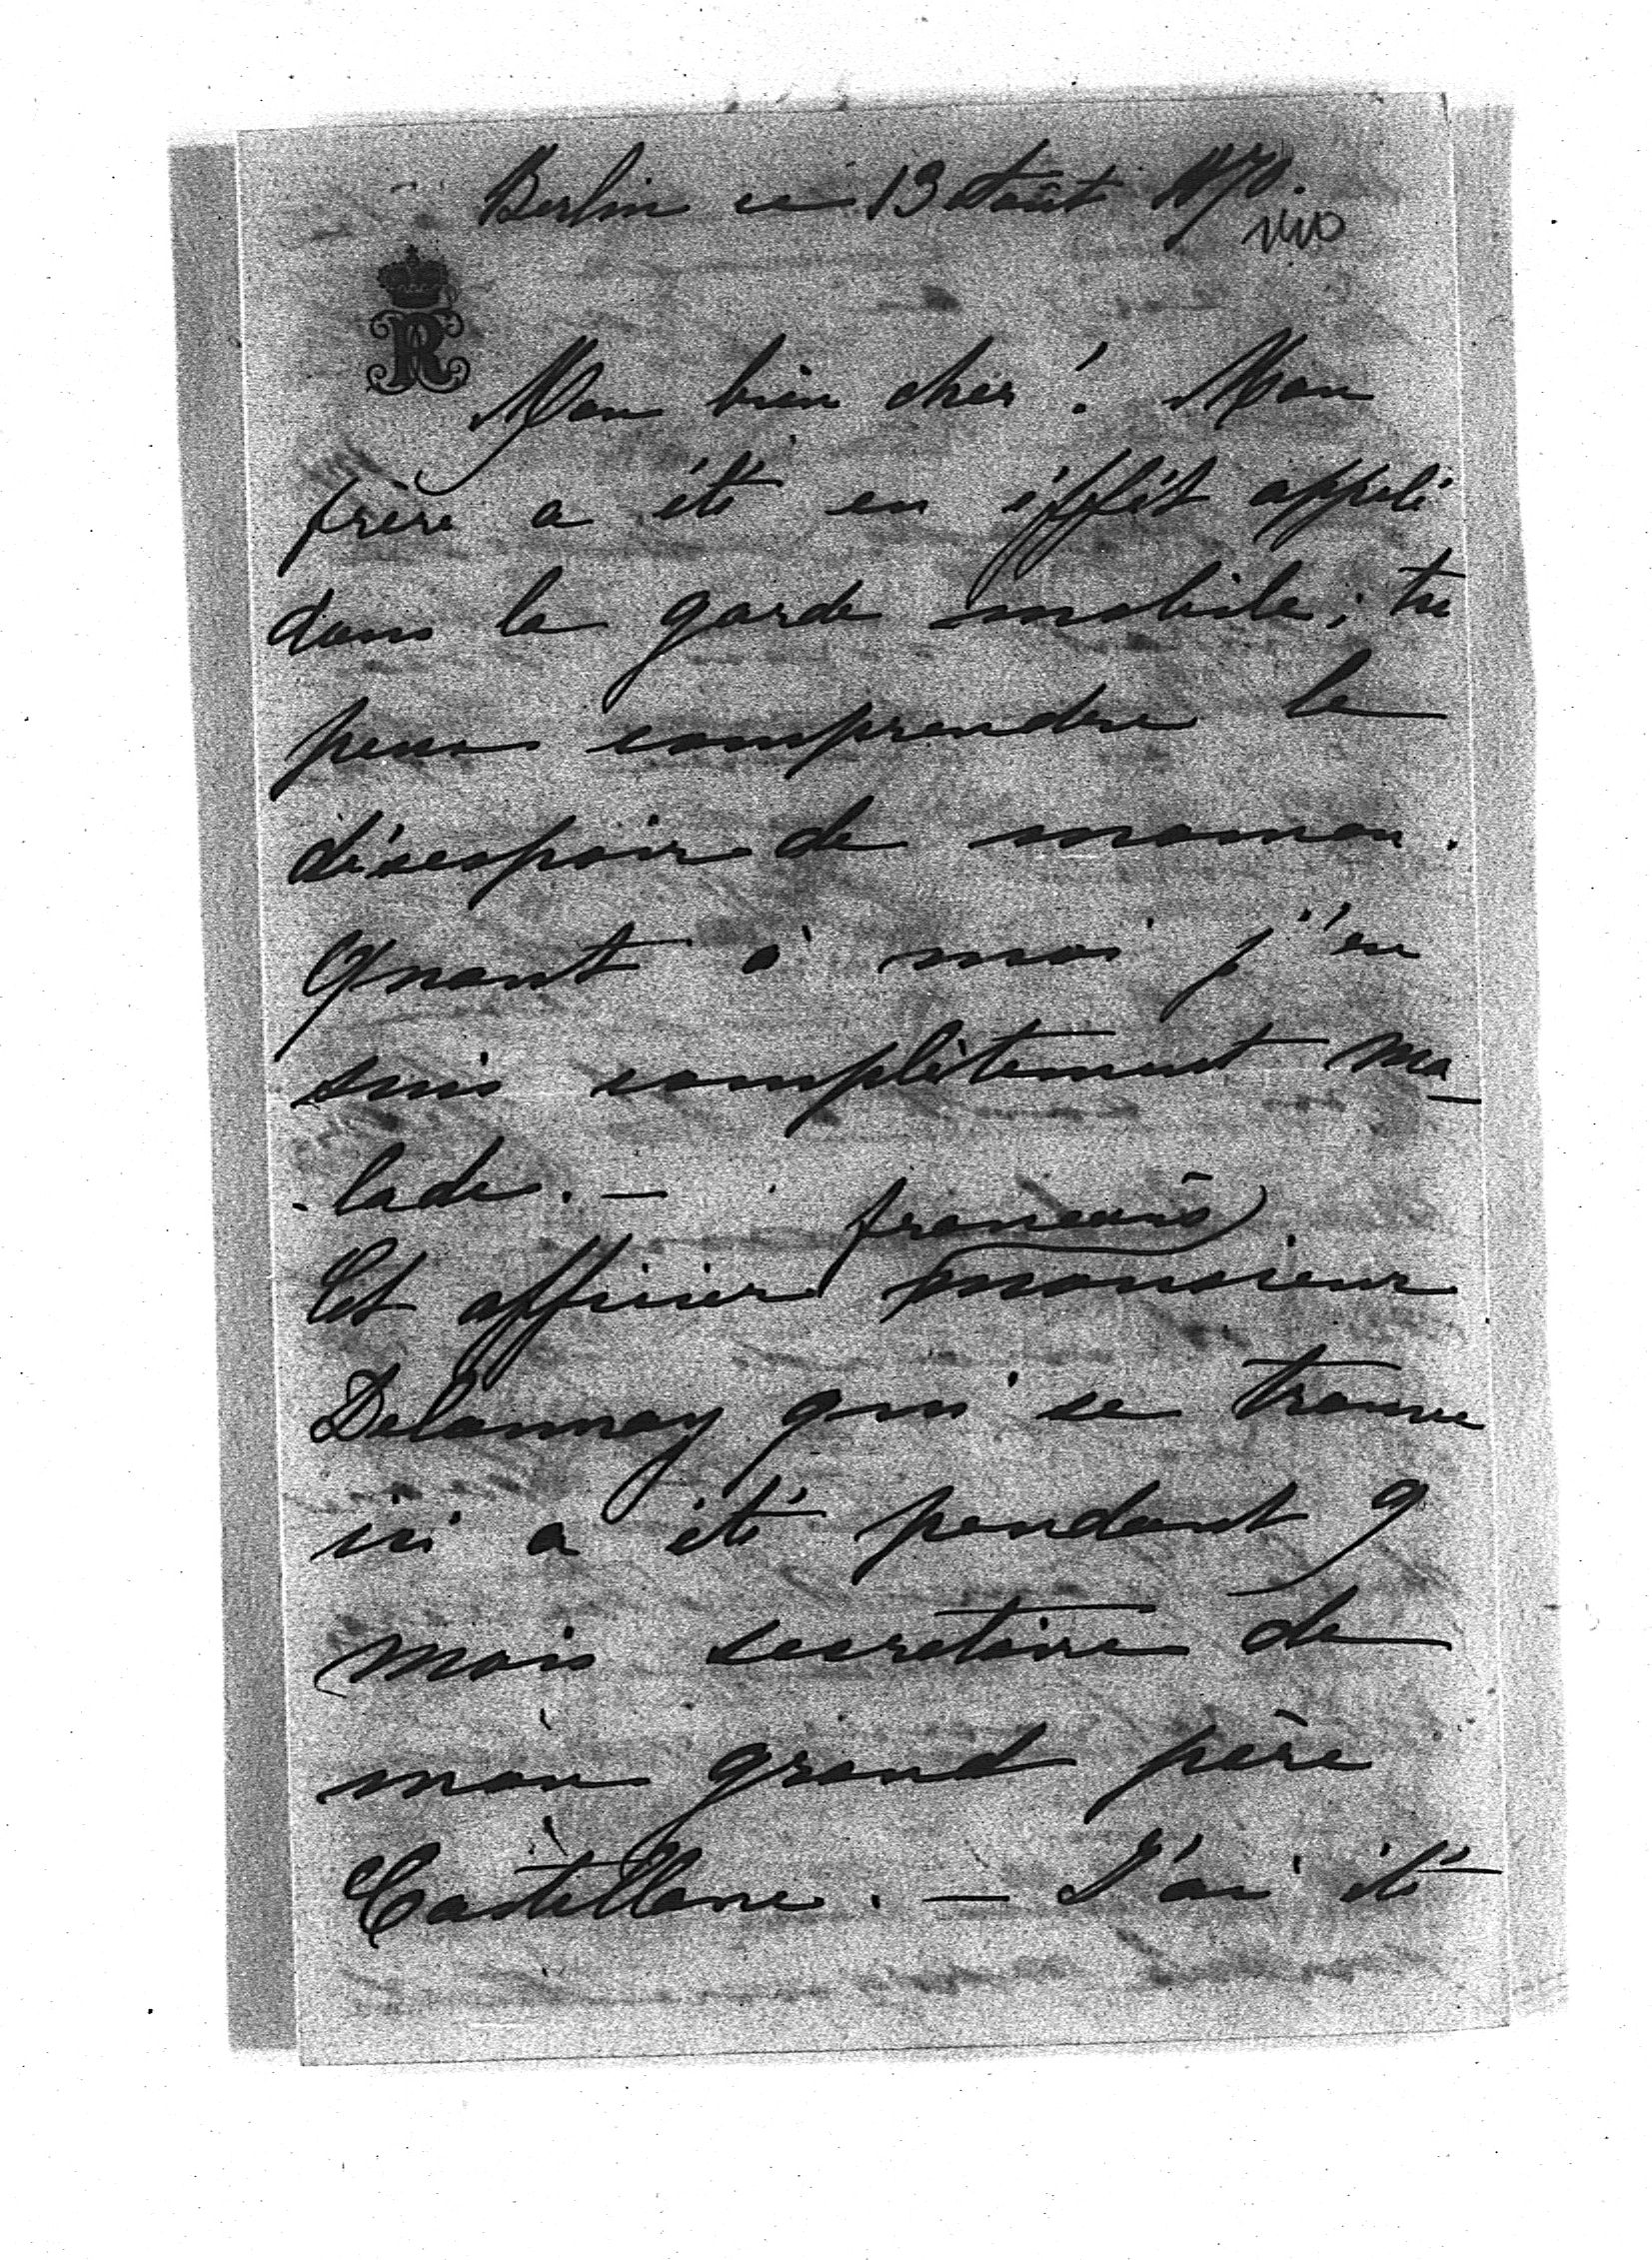 Berlin ce 13 Août 1870.
R
Mon bien cher! Mon
frère a été en éffét appelé
dans la garde mobile; tu
peux comprendre le
désespoir de maman.
Quant à moi j'en
suis complètement ma-
-lade. —
français
Cet officier monsieur
Delannay qui se trouve
ici a été pendant 9
mois secretaire de
mon grand père
Castellane. — J'ai été